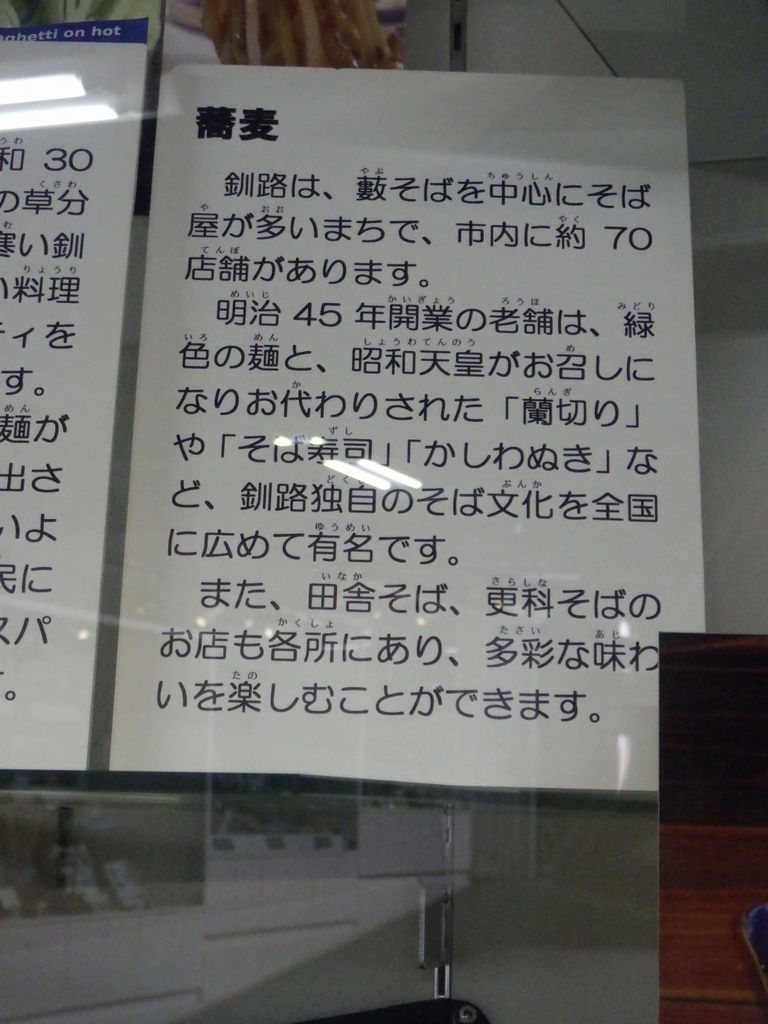 ghetti on hot
和 30
の草分
寒い釧
い料理
ティを
す。
麺が
出さ
いよ
民に
スパ
。
蕎麦
釧路は、藪そばを中心にそば
屋が多いまちで、市内に約 70
店舗があります。
明治 45 年開業の老舗は、緑
色の麺と、昭和天皇がお召しに
なりお代わりされた「蘭切り」
や「そば寿司」「かしわぬき」な
ど、釧路独自のそば文化を全国
に広めて有名です。
また、田舎そば、更科そばの
お店も各所にあり、多彩な味わ
いを楽しむことができます。